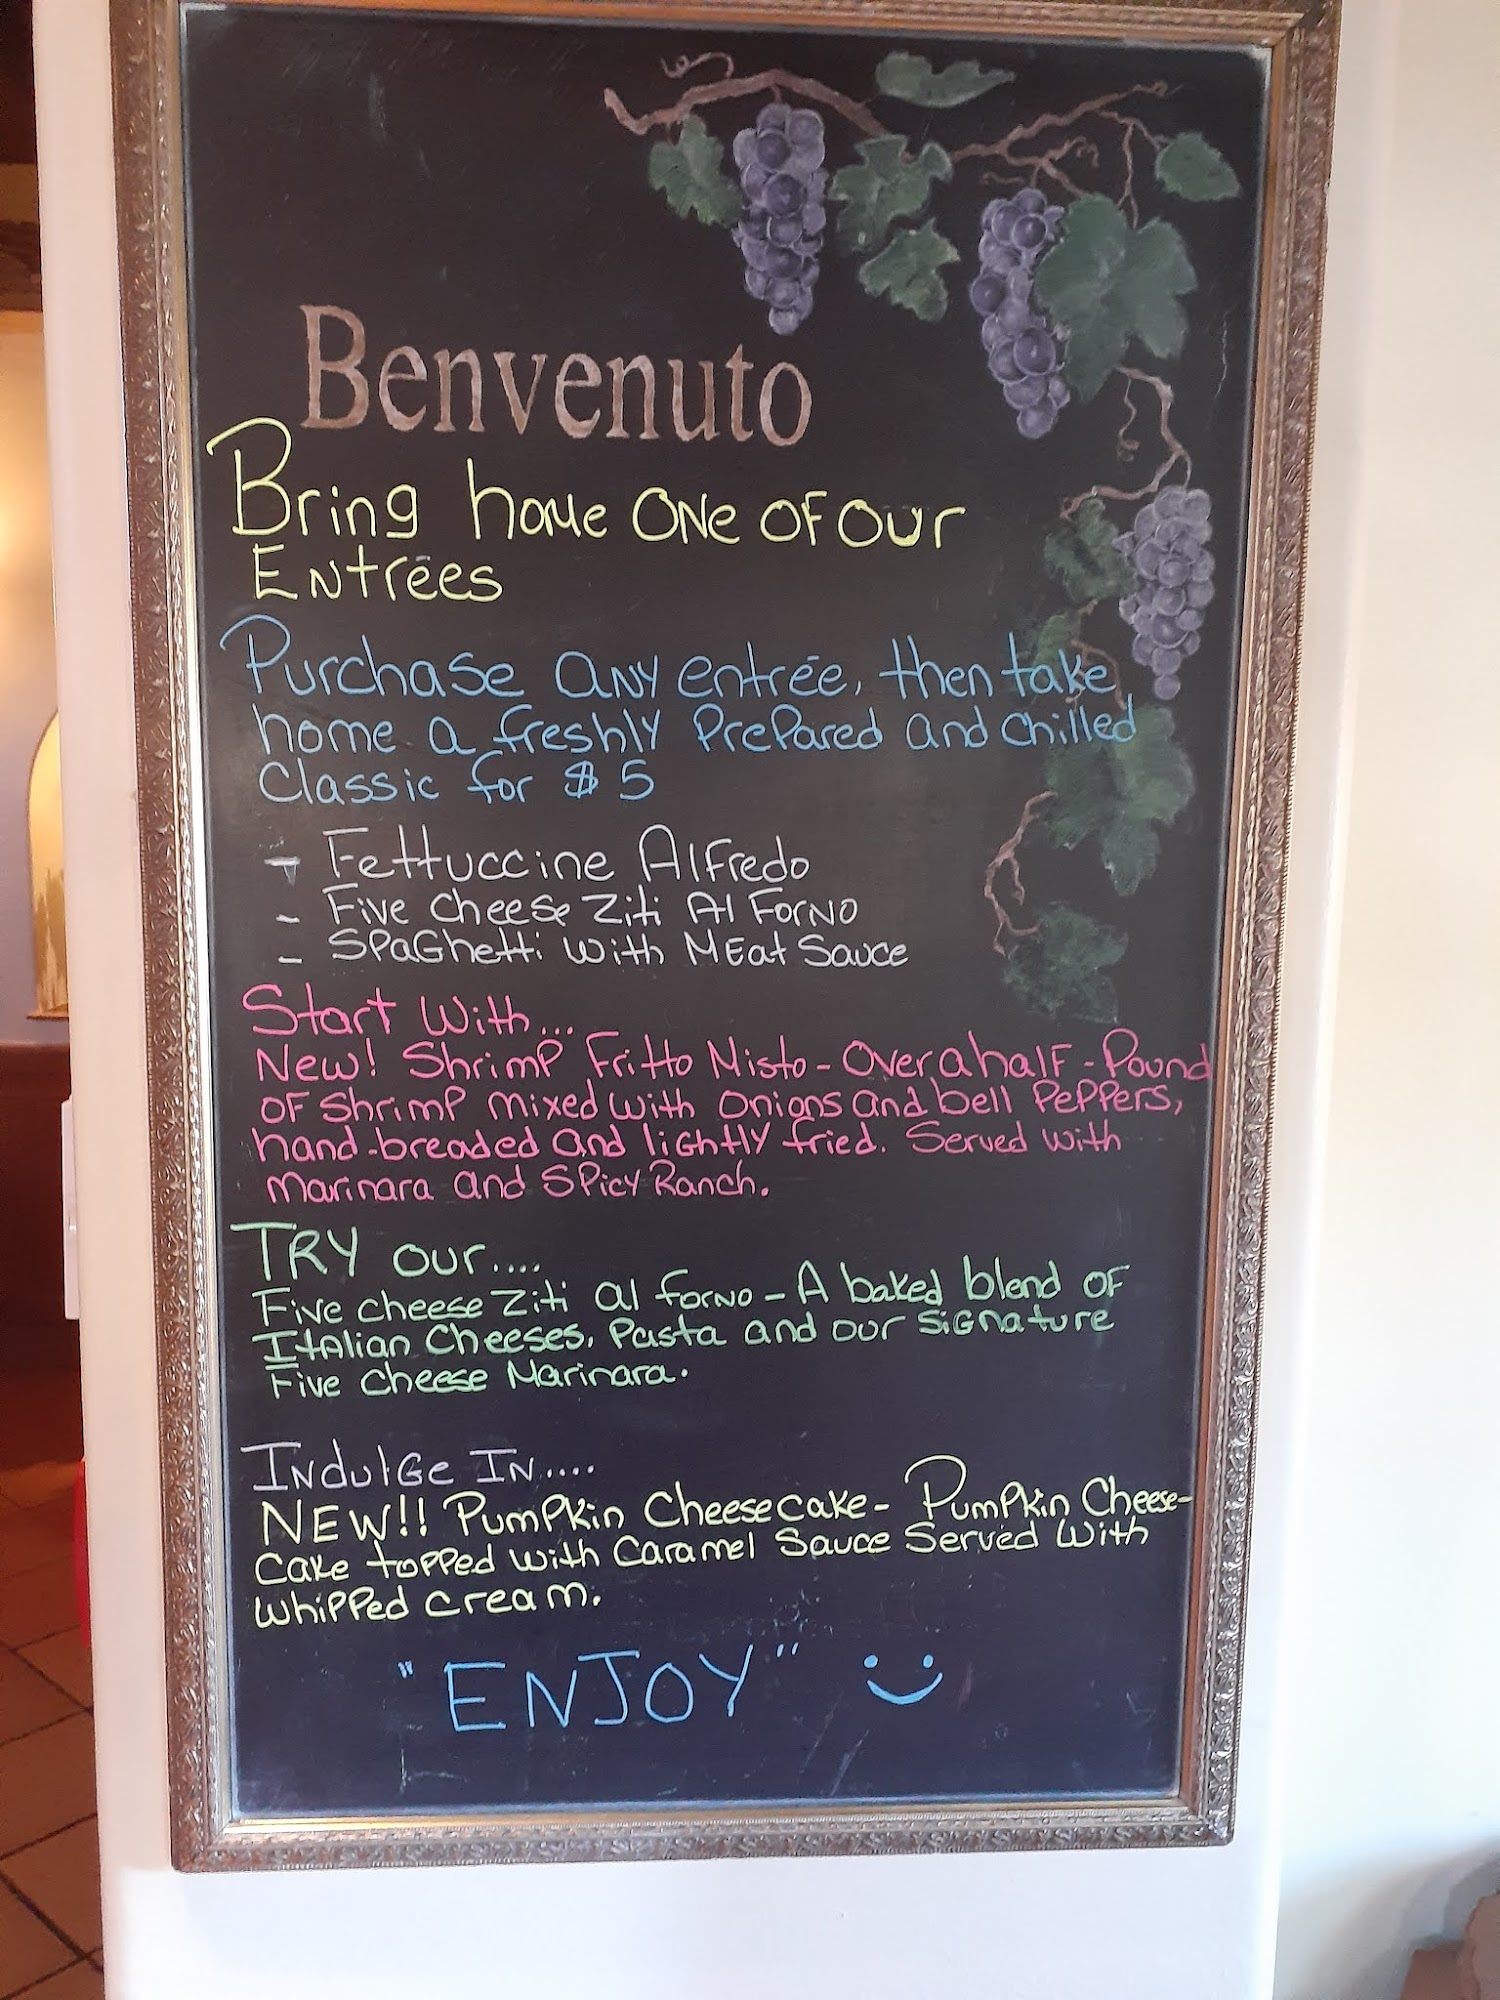 Benvenuto
Bring home one of our
Entrées
Purchase any entrée, then take
home a freshly prepared and chilled
Classic for $5
- Fettuccine Alfredo
- Five Cheese Ziti Al Forno
- Spaghetti with Meat Sauce
Start with...
New! Shrimp Fritto Misto - Over a half-Pound
of shrimp mixed with onions and bell peppers,
hand-breaded and lightly fried. Served with
marinara and Spicy Ranch.
TRY our....
Five cheese Ziti al forno - A baked blend of
Italian Cheeses, Pasta and our signature
Five Cheese Marinara.
Indulge In....
NEW!! Pumpkin Cheesecake - Pumpkin Cheese-
cake topped with Caramel Sauce Served with
whipped cream.
"ENJOY"